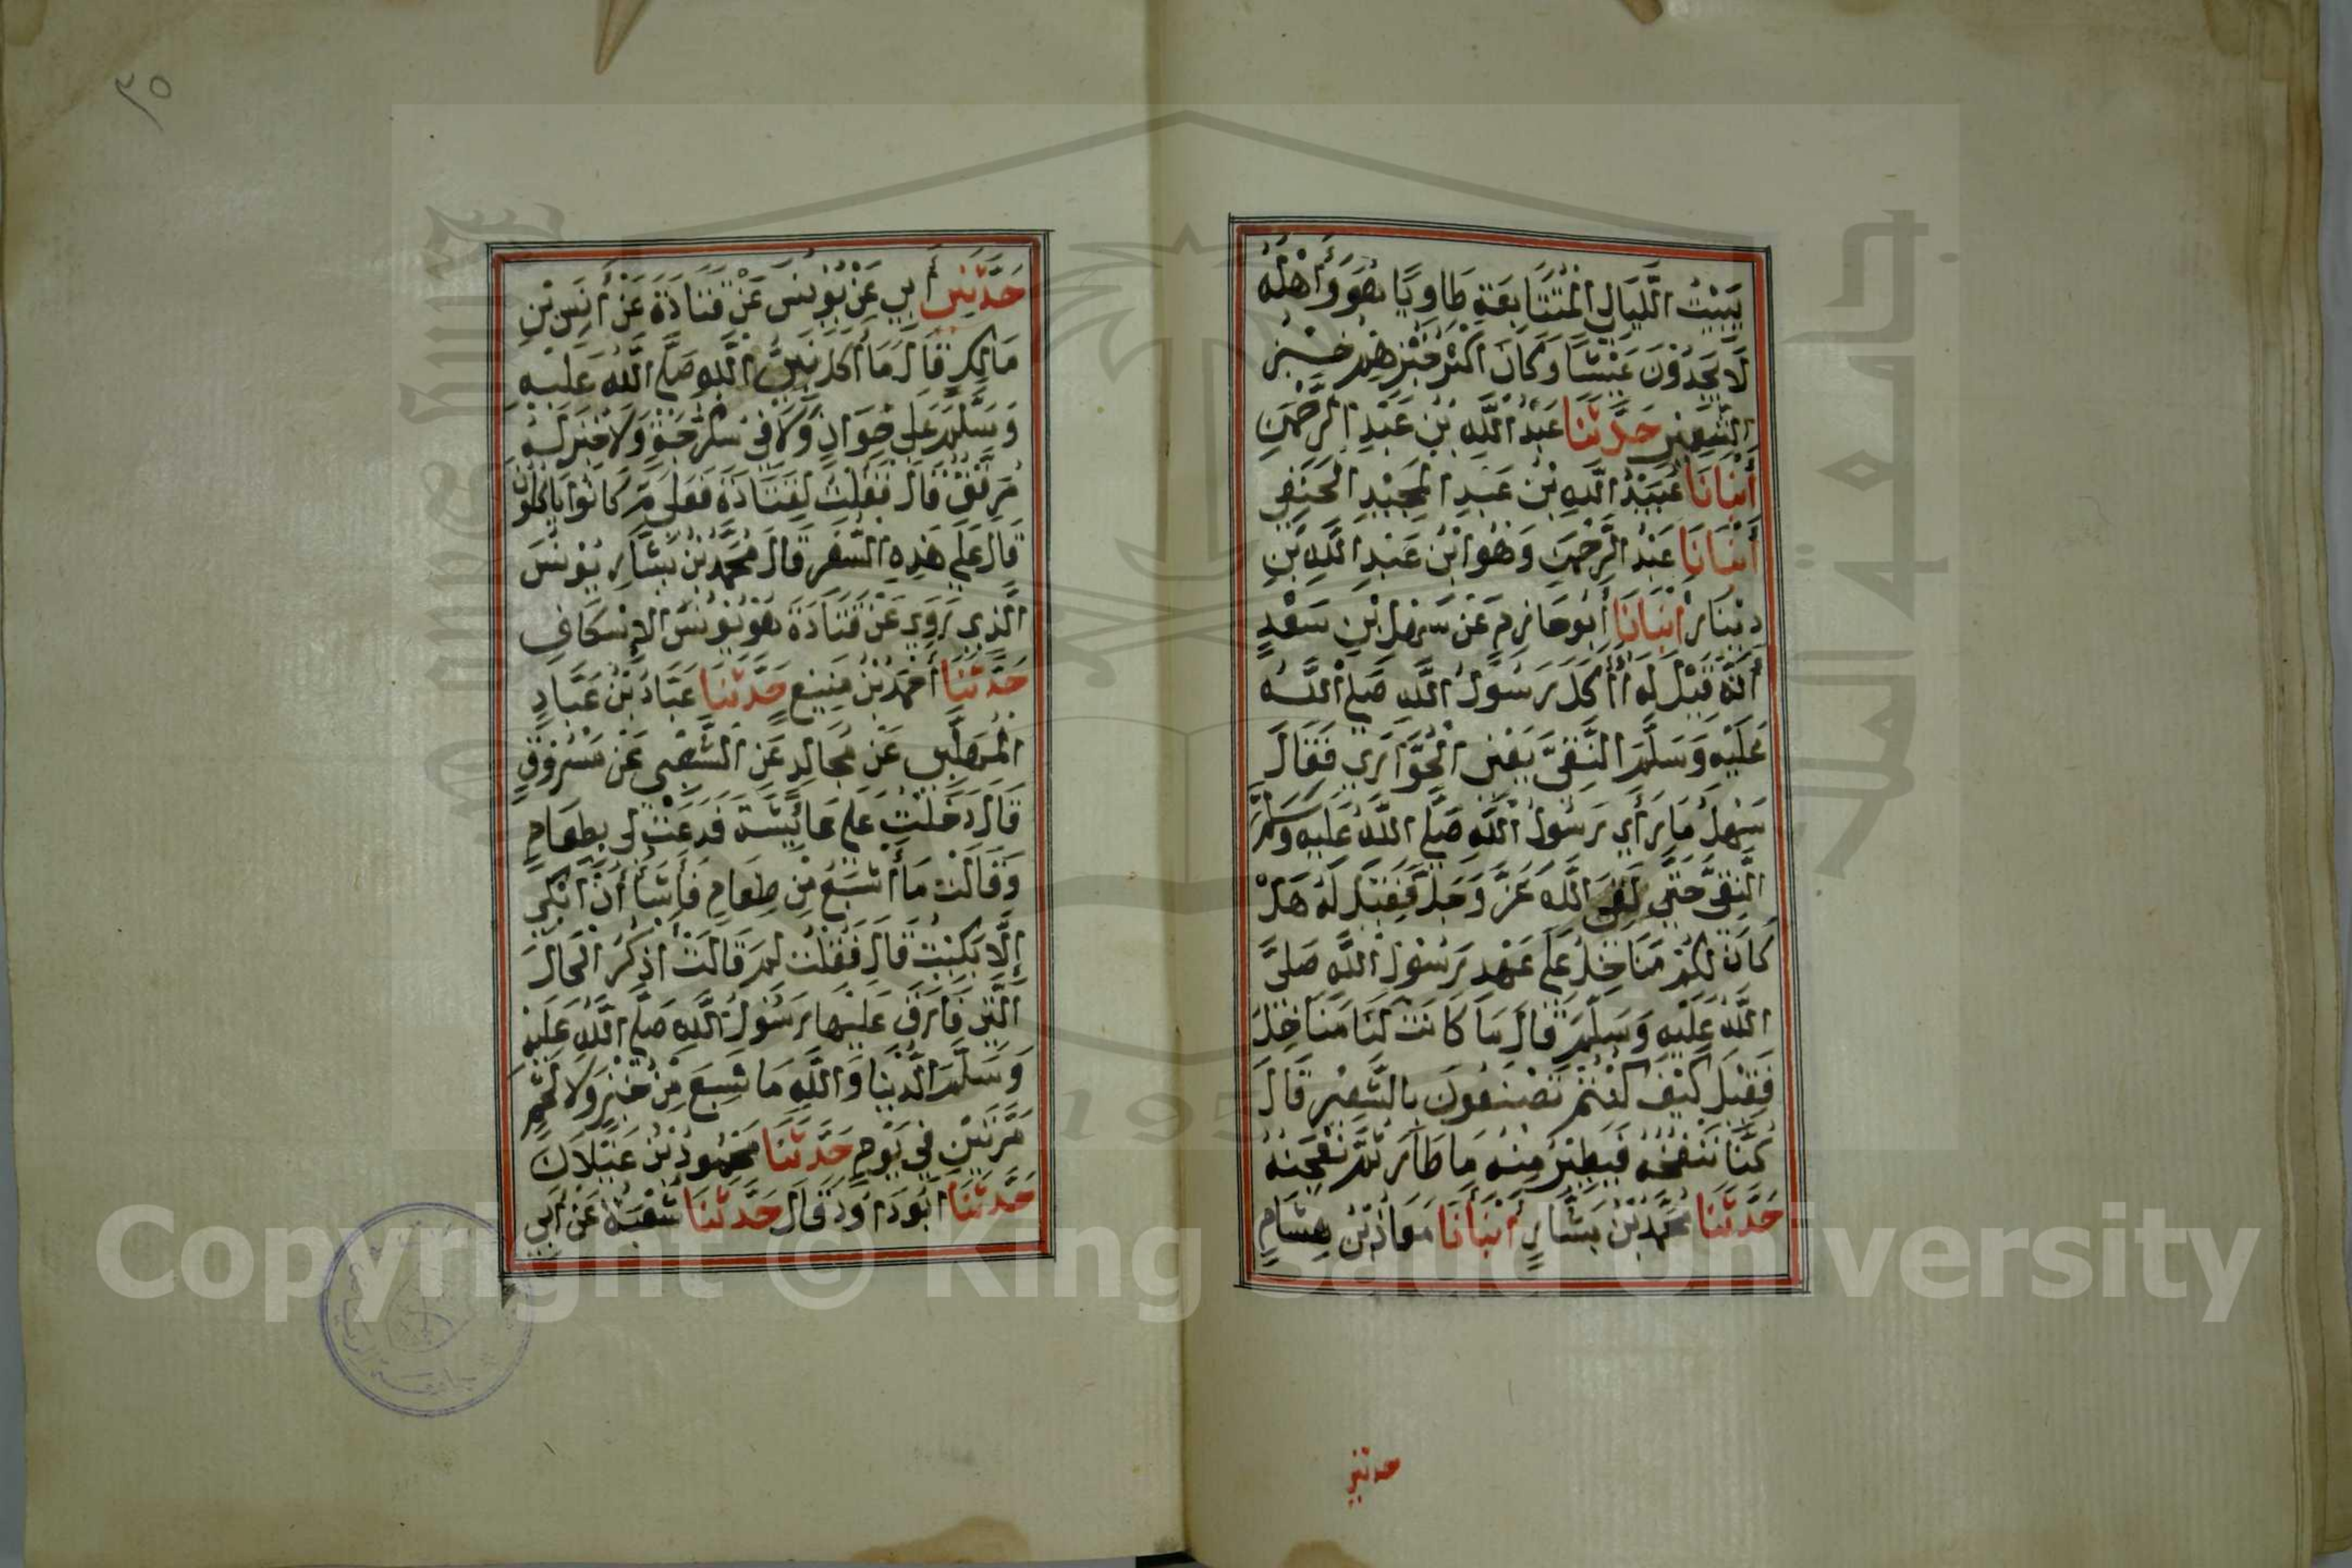 يَبِيْتُ اللَّيَالِي الْمُتَتَابِعَةِ طَاوِيًا هُوَ وَأَهْلُهُ
لَا يَجِدُوْنَ عَيْشًا وَكَانَ أَكْثَرُ خُبْزِهِمْ خُبْزِ
الشَّعِيْرِ حَدَّثَنَا عَبْدُ اللَّهِ بْنُ عَبْدِ الرَّحْمٰنِ
أَنْبَانَا عُبَيْدُ اللَّهِ بْنُ عَبْدِ الْمَجِيْدِ الْحَنَفِي
أَنْبَانَا عَبْدُ الرَّحْمٰنِ وَهُوَ ابْنُ عَبْدِ اللَّهِ بْنِ
دِيْنَارٍ أَنْبَانَا أَبُو حَازِمٍ عَنْ سَهْلِ بْنِ سَعْدٍ
أَنَّهُ قِيْلَ لَهُ أَأَكَلَ رَسُوْلُ اللَّهِ صَلَّى اللَّهُ
عَلَيْهِ وَسَلَّمَ النَّقِيَّ يَعْنِي الْحُوَّارَي فَقَالَ
سَهْلٌ مَا رَأَي رَسُوْلُ اللَّهِ صَلَّى اللَّهُ عَلَيْهِ وَسَلَّمَ
النَّقِيَّ حَتَّى لَقِيَ اللَّهَ عَزَّ وَجَلَّ فَقِيْلَ لَهُ هَلْ
كَانَ لَكُمْ مَنَاخِلُ عَلَى عَهْدِ رَسُوْلِ اللَّهِ صَلَّى
اللَّهُ عَلَيْهِ وَسَلَّمَ قَالَ مَا كَانَتْ لَنَا مَنَاخِلُ
فَقِيْلَ كَيْفَ كُنْتُمْ تَصْنَعُوْنَ بِالشَّعِيْرِ قَالَ
كُنَّا نَنْفُخُهُ فَيَطِيْرُ مِنْهُ مَا طَارَ ثُمَّ نَعْجِنُهُ
حَدَّثَنَا مُحَمَّدُ بْنُ بَشَّارٍ أَنْبَانَا مَعَاذُ بْنُ هِشَامٍ
حدثني
٣٥
حَدَّثَنِي أَبِي عَنْ يُوْنُسَ عَنْ قَتَادَةَ عَنْ أَنَسِ بْنِ
مَالِكٍ قَالَ مَا أَكَلَ نَبِيُّ اللَّهِ صَلَّى اللَّهُ عَلَيْهِ
وَسَلَّمَ عَلَى خِوَانٍ وَلَا فِي سُكُرُّجَةٍ وَلَا خُبِزَ لَهُ
مُرَقَّقٌ قَالَ فَقُلْتُ لِقَتَادَةَ فَعَلَى مَ كَانُوا يَاكُلُوْنَ
قَالَ عَلَى هَذِهِ السُّفَرِ قَالَ مُحَمَّدُ بْنُ بَشَّارٍ يُوْنُسَ
الَّذِي رَوَي عَنْ قَتَادَةَ هُوَ يُوْنُسُ الْإِسْكَافِ
حَدَّثَنَا أَحْمَدُ بْنُ مَنِيْعٍ حَدَّثَنَا عَبَّادُ بْنُ عَبَّادٍ
الْمُهَلَّبِي عَنْ مُجَالِدٍ عَنِ الشَّعْبِي عَنْ مَسْرُوْقٍ
قَالَ دَخَلْتُ عَلَى عَائِشَةَ فَدَعَتْ لِي بِطَعَامٍ
وَقَالَتْ مَا أَشْبَعُ مِنْ طَعَامٍ فَأَشَأُ أَنْ أَبْكِي
إِلَّا بَكَيْتُ قَالَ فَقُلْتُ لِمَ قَالَتْ أَذْكُرُ الْحَالَ
الَّتِي فَارَقَ عَلَيْهَا رَسُوْلُ اللَّهِ صَلَّى اللَّهُ عَلَيْهِ
وَسَلَّمَ الدُّنْيَا وَاللَّهِ مَا شَبِعَ مِنْ خُبْزٍ وَلَا لَحْمٍ
مَرَّتَيْنِ فِي يَوْمٍ حَدَّثَنَا مَحْمُوْدُ بْنُ غَيْلَانَ
حَدَّثَنَا أَبُو دَاوُدَ قَالَ حَدَّثَنَا شُعْبَةُ عَنْ أَبِي
Copyright © King Saud University
1957